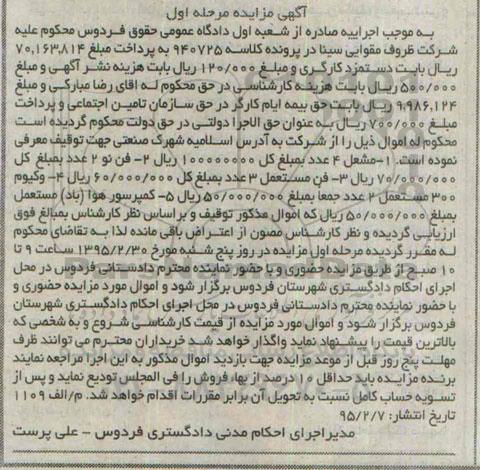 آگهی مزایده مرحله اول
به موجب اجراییه صادره از شعبه اول دادگاه عمومی حقوق فردوس محکوم علیه
شرکت ظروف مقوایی سینا در پرونده کلاسه ۹۴۰۷۲۵ به پرداخت مبلغ ۷۰,۱۶۳,۸۱۴
ریال بابت دستمزد کارگری و مبلغ ۱۲۰/۰۰۰ ریال بابت هزینه نشر آگهی و مبلغ
۵۰۰/۰۰۰ ریال بابت هزینه کارشناسی در حق محکوم له اقای رضا مبارکی و مبلغ
۹,۹۸۶,۱۲۴ ریال بابت حق بیمه ایام کارگر در حق سازمان تامین اجتماعی و پرداخت
مبلغ ۷۰۰/۰۰۰ ریال به عنوان حق الاجرا دولتی در حق دولت محکوم گردیده است
محکوم له اموال ذیل را از شرکت به آدرس اسلامیه شهرک صنعتی جهت توقیف معرفی
نموده است. ۱-مشعل ۴ عدد بمبلغ کل ۱۰۰۰۰۰۰۰۰ ریال ۲- فن نو ۲ عدد بمبلغ کل
۷۰/۰۰۰/۰۰۰ ریال ۳- فن مستعمل ۳ عدد بمبلغ کل ۶۰/۰۰۰/۰۰۰ ریال ۴- وکیوم
۳۰۰ مستعمل ۲ عدد جمعا بمبلغ ۵۰/۰۰۰/۰۰۰ ریال ۵- کمپرسور هوا (باد) مستعمل
بمبلغ ۵۰/۰۰۰/۰۰۰ ریال که اموال مذکور توقیف و بر اساس نظر کارشناس بمبالغ فوق
ارزیابی گردیده و نظر کارشناس مصون از اعتراض باقی مانده لذا به تقاضای محکوم
له مقرر گردیده مرحله اول مزایده در روز پنج شنبه مورخ ۱۳۹۵/۲/۳۰ ساعت ۹ تا
۱۰ صبح از طریق مزایده حضوری و با حضور نماینده محترم دادستانی فردوس در محل
اجرای احکام دادگستری شهرستان فردوس برگزار شود و اموال مورد مزایده حضوری و
با حضور نماینده محترم دادستانی فردوس در محل اجرای احکام دادگستری شهرستان
فردوس برگزار شود و اموال مورد مزایده از قیمت کارشناسی شروع و به شخصی که
بالاترین قیمت را پیشنهاد نماید واگذار خواهد شد خریداران محترم می توانند ظرف
مهلت پنج روز قبل از موعد مزایده جهت بازدید اموال مذکور به این اجرا مراجعه نمایند
برنده مزایده باید حداقل ۱۰ درصد از بهار فروش را فی المجلس تودیع نماید و پس از
تسویه حساب کامل نسبت به تحویل آن برابر مقررات اقدام خواهد شد. م/الف ۱۱۰۹
تاریخ انتشار: ۹۵/۲/۷
مدیر اجرای احکام مدنی دادگستری فردوس - علی پرست